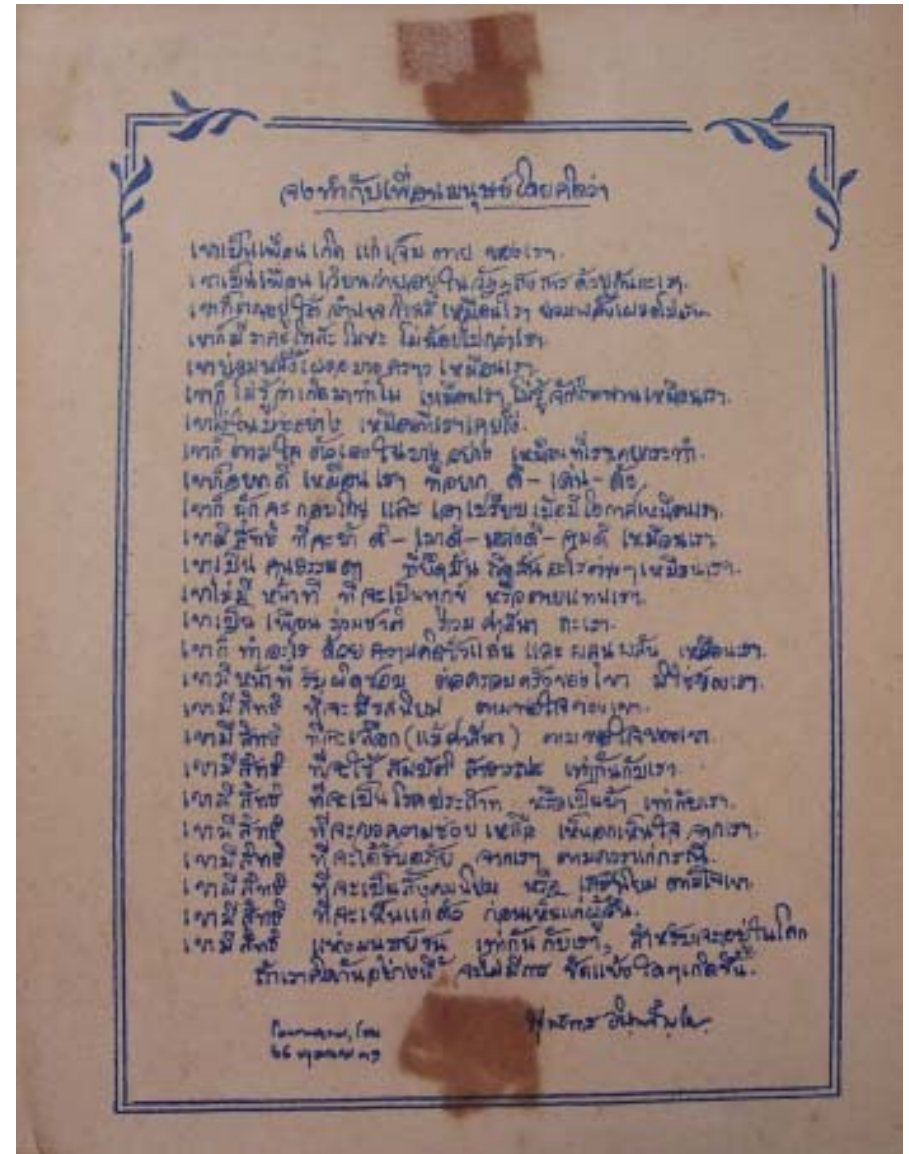 จงทำกับเพื่อนมนุษย์โดยคิดว่า
เขาเป็นเพื่อน เกิด แก่ เจ็บ ตาย ของเรา.
เขาเป็นเพื่อน เวียนว่ายอยู่ใน วัฏฏสงสาร ด้วยกันกะเรา.
เขาก็ตกอยู่ใต้ อำนาจกิเลส เหมือนเรา ย่อมพลั้งเผลอไปบ้าง.
เขาก็มี ราคะ โทสะ โมหะ ไม่น้อยไปกว่าเรา.
เขาย่อมพลั้งเผลอ บางคราว เหมือนเรา.
เขาก็ ไม่รู้ว่าเกิดมาทำไม เหมือนเรา ไม่รู้จักนิพพานเหมือนเรา.
เขาโง่ในบางอย่าง เหมือนที่เราเคยโง่.
เขาก็ ตามใจ ตัวเองในบาง อย่าง เหมือนที่เราเคยกระทำ.
เขาก็อยากดี เหมือน เรา ที่อยาก ดี - เด่น - ดัง.
เขาก็ มักจะ กอบโกย และ เอาเปรียบ เมื่อมีโอกาสเหมือนเรา.
เขามีสิทธิ ที่จะบ้า ดี - เมาดี - หลงดี - จมดี เหมือนเรา
เขาเป็น คนธรรมดา ที่ยึดมั่น ถือมั่น อะไรต่างๆ เหมือนเรา.
เขาไม่มี หน้าที่ ที่จะเป็นทุกข์ หรือตายแทนเรา.
เขาเป็น เพื่อน ร่วมชาติ ร่วม ศาสนา กะเรา.
เขาก็ ทำอะไร ด้วย ความคิดชั่วแล่น และ ผลุนผลัน เหมือนเรา.
เขามีหน้าที่ รับผิดชอบ ต่อครอบครัวของเขา มิใช่ของเรา.
เขามี สิทธิ ที่จะมีรสนิยม ตามพอใจของเขา.
เขามี สิทธิ ที่จะเลือก (แม้ศาสนา) ตามพอใจของเขา
เขามี สิทธิ ที่จะใช้ สมบัติ สาธารณะ เท่ากันกับเรา.
เขามี สิทธิ ที่จะเป็น โรคประสาท หรือเป็นบ้า เท่ากับเรา.
เขามี สิทธิ ที่จะขอความช่วย เหลือ เห็นอกเห็นใจ จากเรา.
เขามี สิทธิ ที่จะได้รับอภัย จากเรา ตามควรแก่กรณี.
เขามี สิทธิ ที่จะเป็นสังคมนิยม หรือ เสรีนิยม ตามใจเขา.
เขามี สิทธิ ที่จะเห็นแก่ตัว ก่อนเห็นแก่ผู้อื่น.
เขามี สิทธิ แห่งมนุษย์ชน เท่ากันกับเรา, สำหรับจะอยู่ในโลก
ถ้าเราคิดกันอย่างนี้ จะไม่มีการ ขัดแย้ง ใดๆเกิดขึ้น.
พุทธทาส อินทปัญโญ